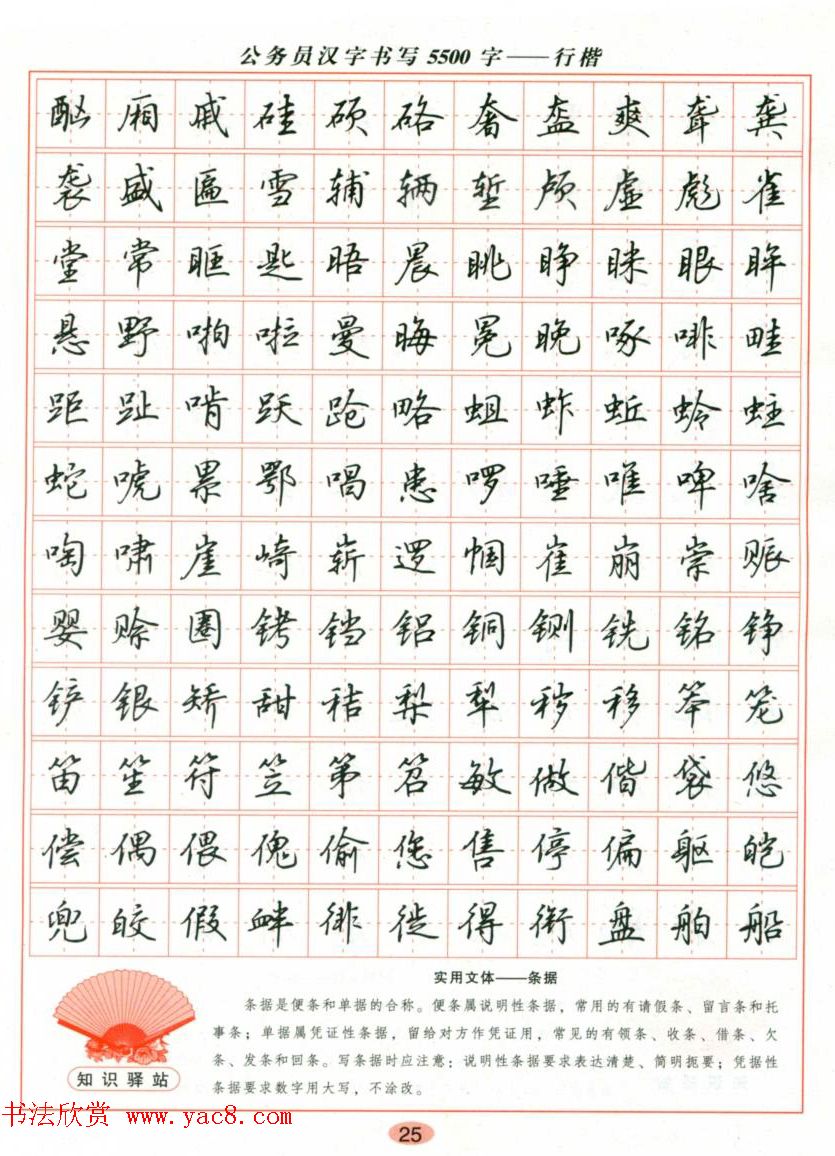 公务员汉字书写5500字——行楷
酗厢戚硅硕硌奢盔爽聋龚
袭盛匾雪辅辆堑颅虚彪雀
堂常眶匙晤晨眺睁眯眼眸
悬野啪啦曼晦冕晚啄啡畦
距趾啃跃跄略蛆蚱蚯蛉蛀
蛇唬累鄂唱患啰唾唯啤啥
啕啸崖崎崭逻帼崔崩崇赈
婴赊圈铐铛铝铜铡铣铭铮
铲银矫甜秸梨犁秽移笨笼
笛笙符笠第笤敏做偕袋悠
偿偶偎傀偷您售停偏躯皑
兜皎假衅徘徙得衔盘舶船
实用文体——条据
条据是便条和单据的合称。便条属说明性条据，常用的有请假条、留言条和托
事条；单据属凭证性条据，留给对方作凭证用，常见的有领条、收条、借条、欠
条、发条和回条。写条据时应注意：说明性条据要求表达清楚、简明扼要；凭据性
条据要求数字用大写，不涂改。
知识驿站
书法欣赏 www.yac8.com
25